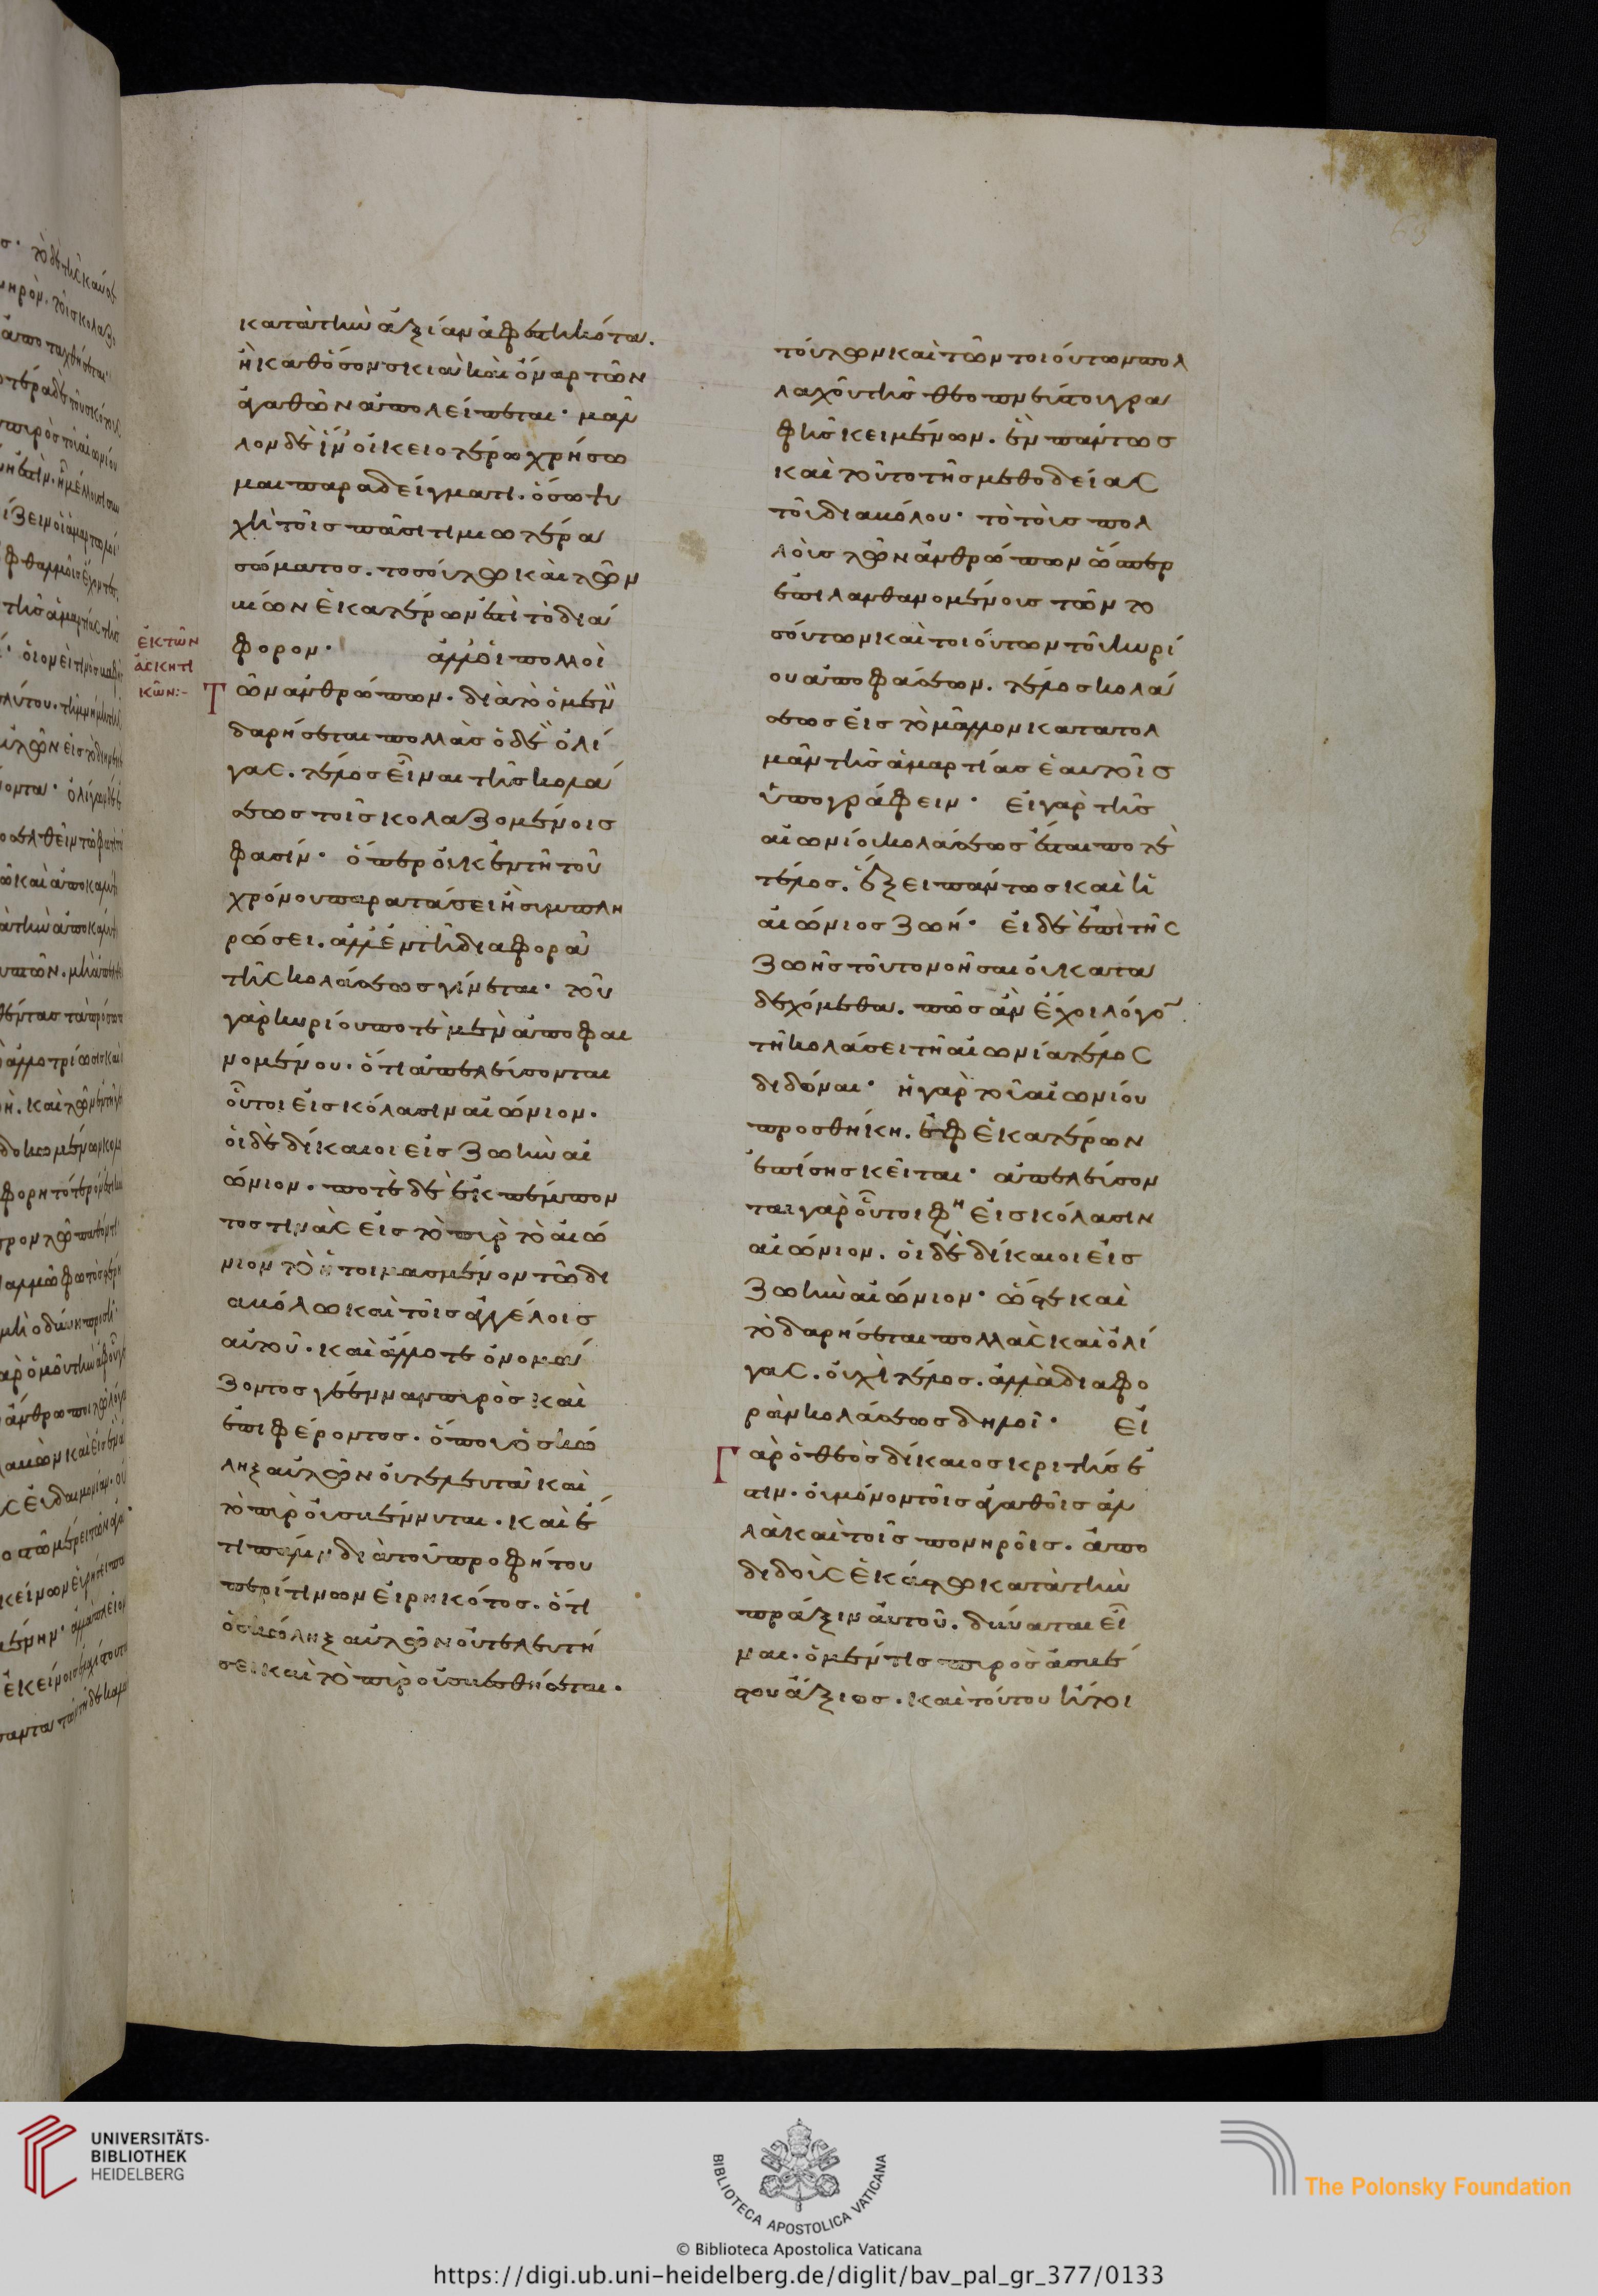 κατὰ τὴν ἀξίαν ἀφεστηκότα.
ἢ καθόσον σκιὰ καὶ ὄναρ τῶν
ἀγαθῶν ἀπολείπεται· μᾶλ
λον δὲ ἵν' οἰκειοτέρω χρήσω
μαι παραδείγματι. ὅσω ψυ
χὴ τοῖς πᾶσι τιμιωτέρα
σώματος. τοσούτω καὶ τῶν
βίων ἑκατέρων ἐστὶ τὸ διά
φορον· ἀλλ' οἱ πολλοὶ
ἐκ τῶν
ἀσκητι
κῶν:-
Τῶν ἀνθρώπων. διὰ τὸ ὁ μὲν
δαρήσεται πολλὰς ὁ δὲ ὀλί
γας. τέλος εἶναι τῆς κολά
σεως τοῖς κολαζομένοις
φασίν· ὅπερ οὐκ ἐν τῆ τοῦ
χρόνου παρατάσει ἢ συμπλη
ρώσει. ἀλλ' ἐν τῆ διαφορᾶ
τῆς κολάσεως γίνεται· τοῦ
γὰρ κυρίου ποτὲ μὲν ἀποφαι
νομένου. ὅτι ἀπελεύσονται
οὗτοι εἰς κόλασιν αἰώνιον.
οἱ δὲ δίκαιοι εἰς ζωὴν αἰ
ώνιον. ποτὲ δὲ ἐκπέμπον
τος τινὰς εἰς τὸ πῦρ τὸ αἰώ
νιον τὸ ἡτοιμασμένον τῶ δι
αβόλω καὶ τοῖς ἀγγέλοις
αὐτοῦ. καὶ ἄλλοτε ὀνομά
ζοντος γέενναν πυρὸς καὶ
ἐπιφέροντος. ὅπου ὁ σκώ
ληξ αὐτῶν οὐ τελευτᾶ καὶ
τὸ πῦρ οὐ σβέννυται. καὶ ἔ
τι διὰ τοῦ προφήτου
περί τινων εἰρηκότος. ὅτι
ὁ σκώληξ αὐτῶν οὐ τελευτή
σει καὶ τὸ πῦρ οὐ σβεσθήσεται.
τούτων καὶ τῶν τοιούτων πολ
λαχοῦ τῆς θεοπνεύστου γρα
φῆς κειμένων. ἓν πάντως
καὶ τοῦτο τῆς μεθοδείας
τοῦ διαβόλου· τὸ τοὺς πολ
λοὺς τῶν ἀνθρώπων ὥσπερ
ἐπιλανθανομένους τῶν το
σούτων καὶ τοιούτων τοῦ κυρί
ου ἀποφάσεων. τέλος κολά
σεως εἰς τὸ μᾶλλον κατατολ
μᾶν τῆς ἁμαρτίας ἑαυτοῖς
ὑπογράφειν· εἰ γὰρ τῆς
αἰωνίου κολάσεως ἔσται ποτὲ
τέλος. ἕξει πάντως καὶ ἡ
αἰώνιος ζωή· εἰ δὲ ἐπὶ τῆς
ζωῆς τοῦτο νοῆσαι οὐ κατα
δεχόμεθα. πῶς ἂν ἔχοι λόγο͂
τῆ κολάσει τῆ αἰωνία τέλος
διδόναι· ἡ γὰρ τοῦ αἰωνίου
προσθήκη. ἐφ' ἑκατέρων
ἐπίσης κεῖται· ἀπελεύσον
ται γὰρ οὗτοι φη εἰς κόλασιν
αἰώνιον. οἱ δὲ δίκαιοι εἰς
ζωὴν αἰώνιον· ὥστε καὶ
τὸ δαρήσεται πολλὰς καὶ ὀλί
γας. οὐχὶ τέλος. ἀλλὰ διαφο
ρὰν κολάσεως δηλοῖ· Εἰ
Γὰρ ὁ θεὸς δίκαιος κριτής ἐ
στιν. οὐ μόνον τοῖς ἀγαθοῖς ἀλ
λὰ καὶ τοῖς πονηροῖς. ἀπο
διδοὺς ἑκάστω κατὰ τὴν
πρᾶξιν αὐτοῦ. δύναται εἶ
ναι. ὁ μέν τις πυρὸς ἀσβέ
στου ἄξιος. καὶ τούτου ἤτοι
UNIVERSITÄTS-
BIBLIOTHEK
HEIDELBERG
BIBLIOTECA APOSTOLICA VATICANA
© Biblioteca Apostolica Vaticana
The Polonsky Foundation
https://digi.ub.uni-heidelberg.de/diglit/bav_pal_gr_377/0133